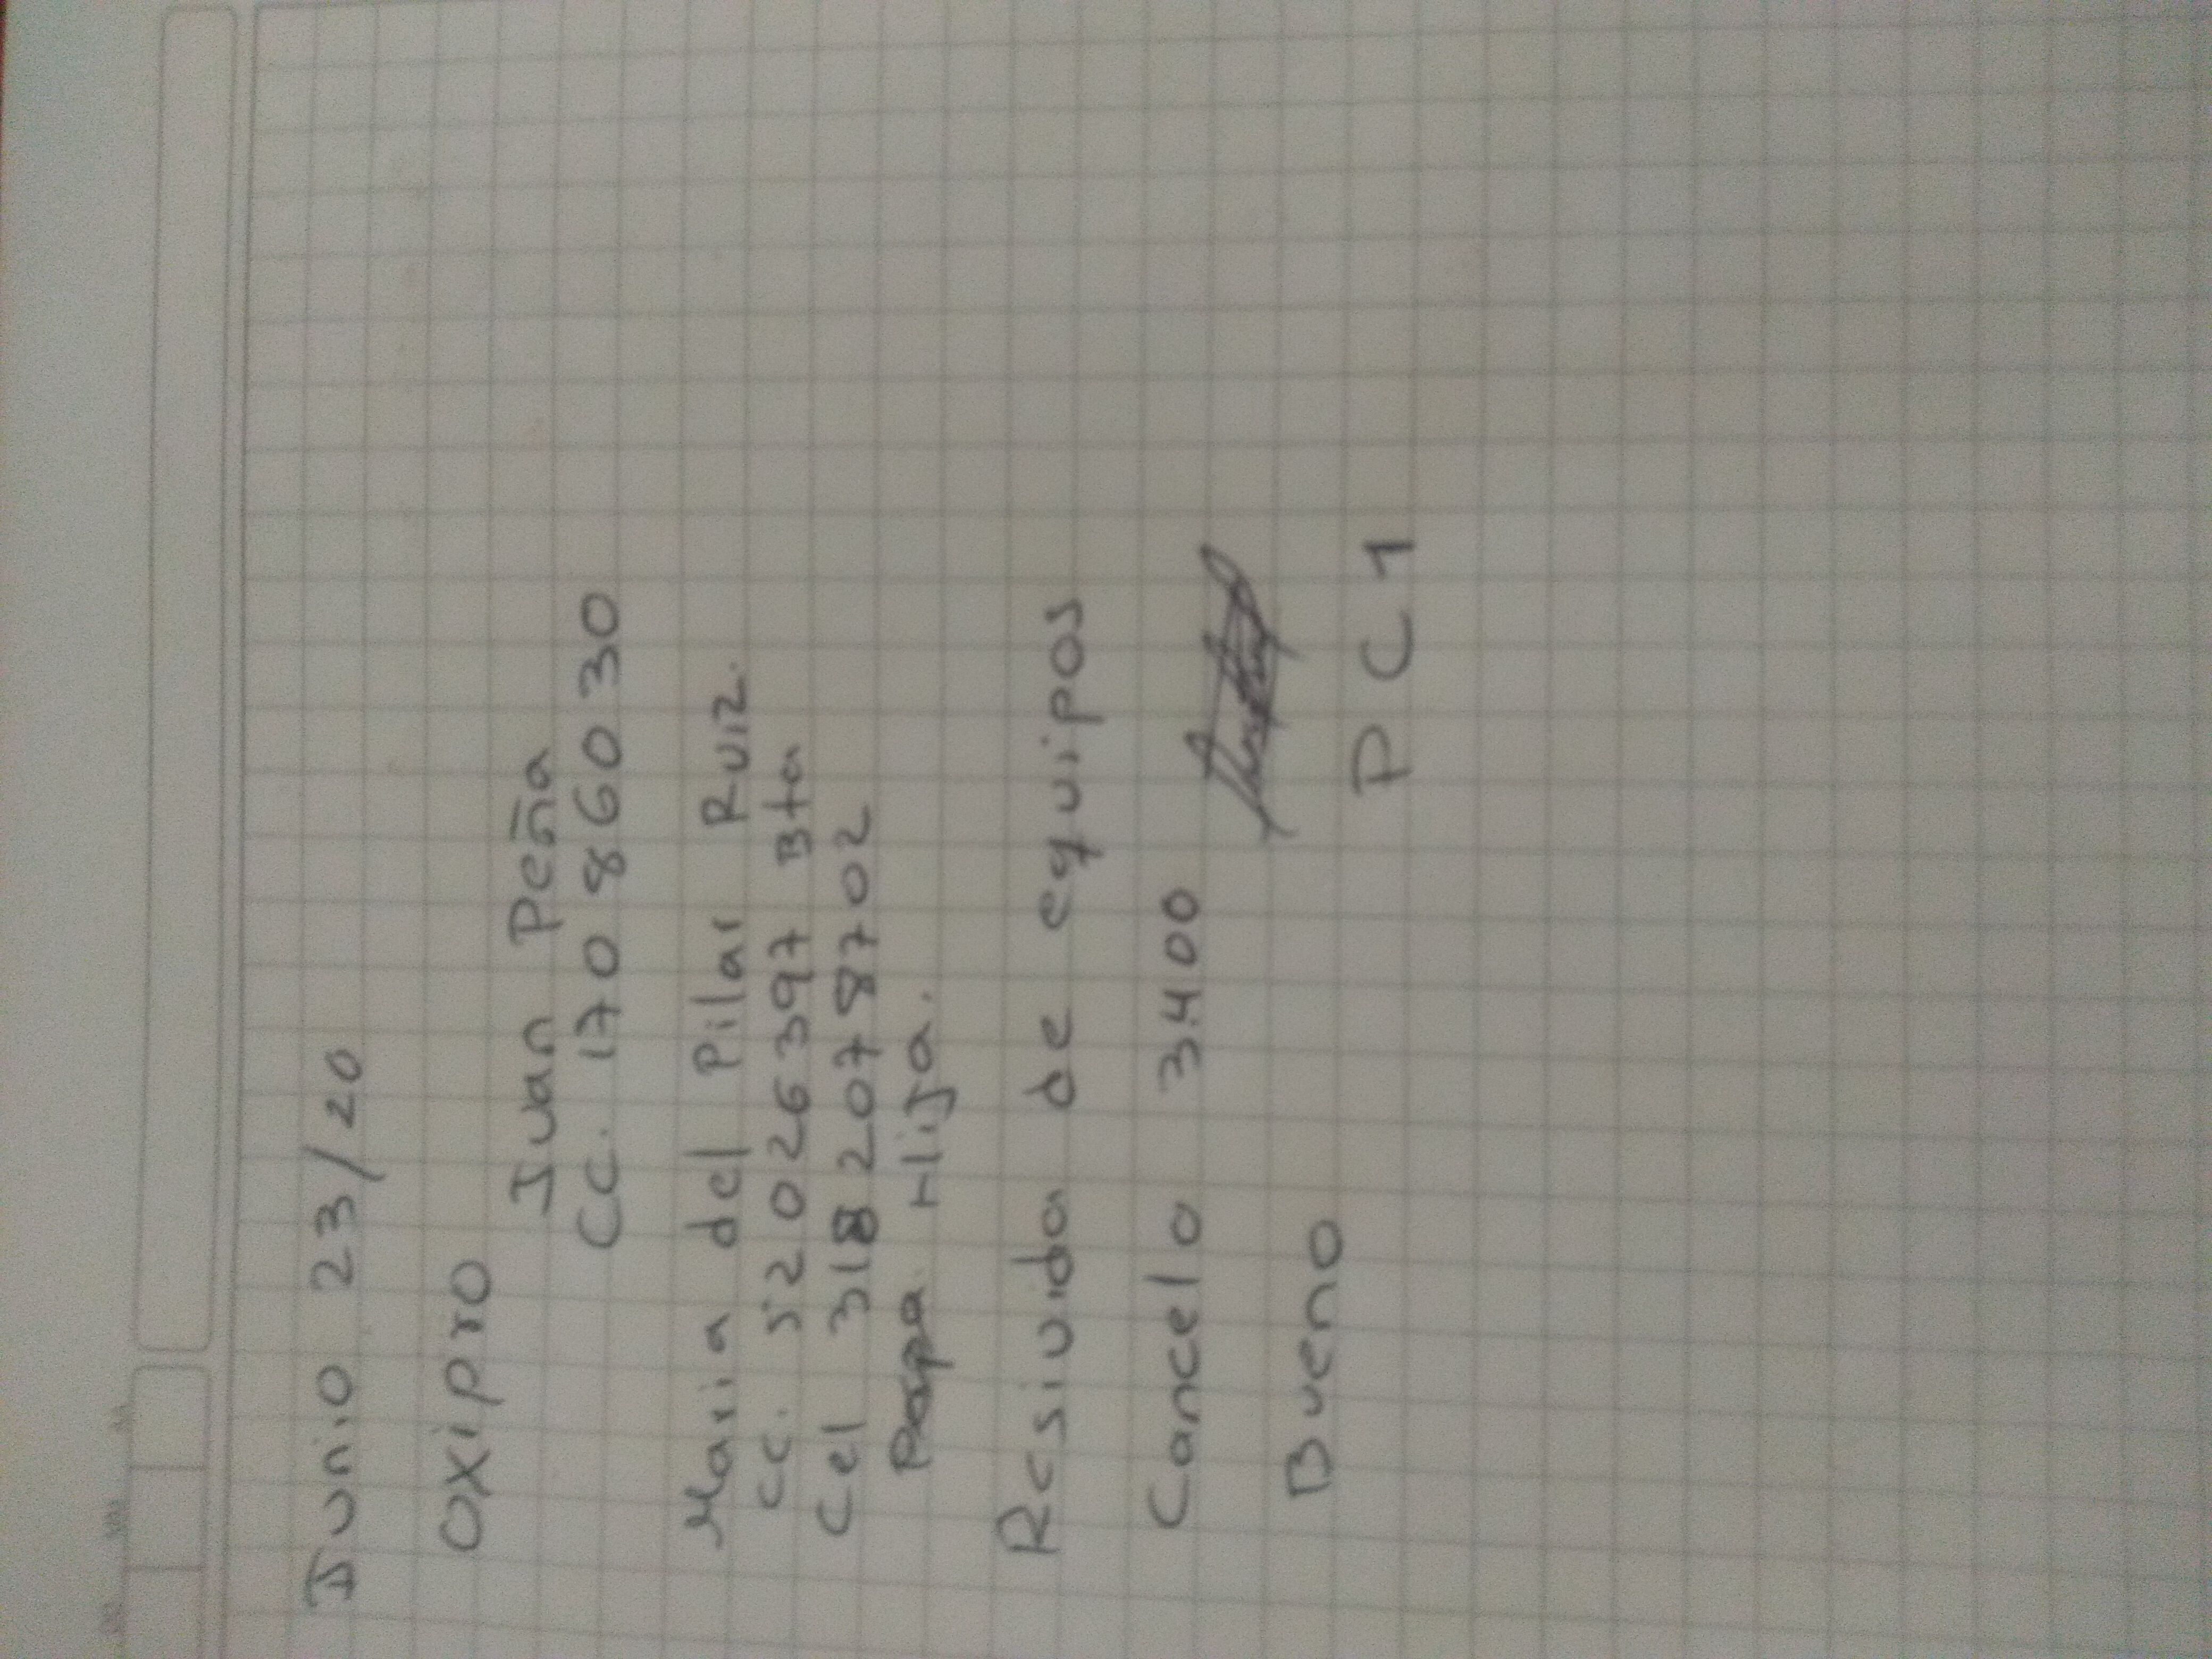 Junio 23/20
Oxipro
Juan Peña
CC. 170 860 30
Maria del Pilar Ruiz.
CC. 52026397 Bta
Cel 318 2078702
Hija.
Resivida de equipos
Cancelo 3400
Bueno PC1